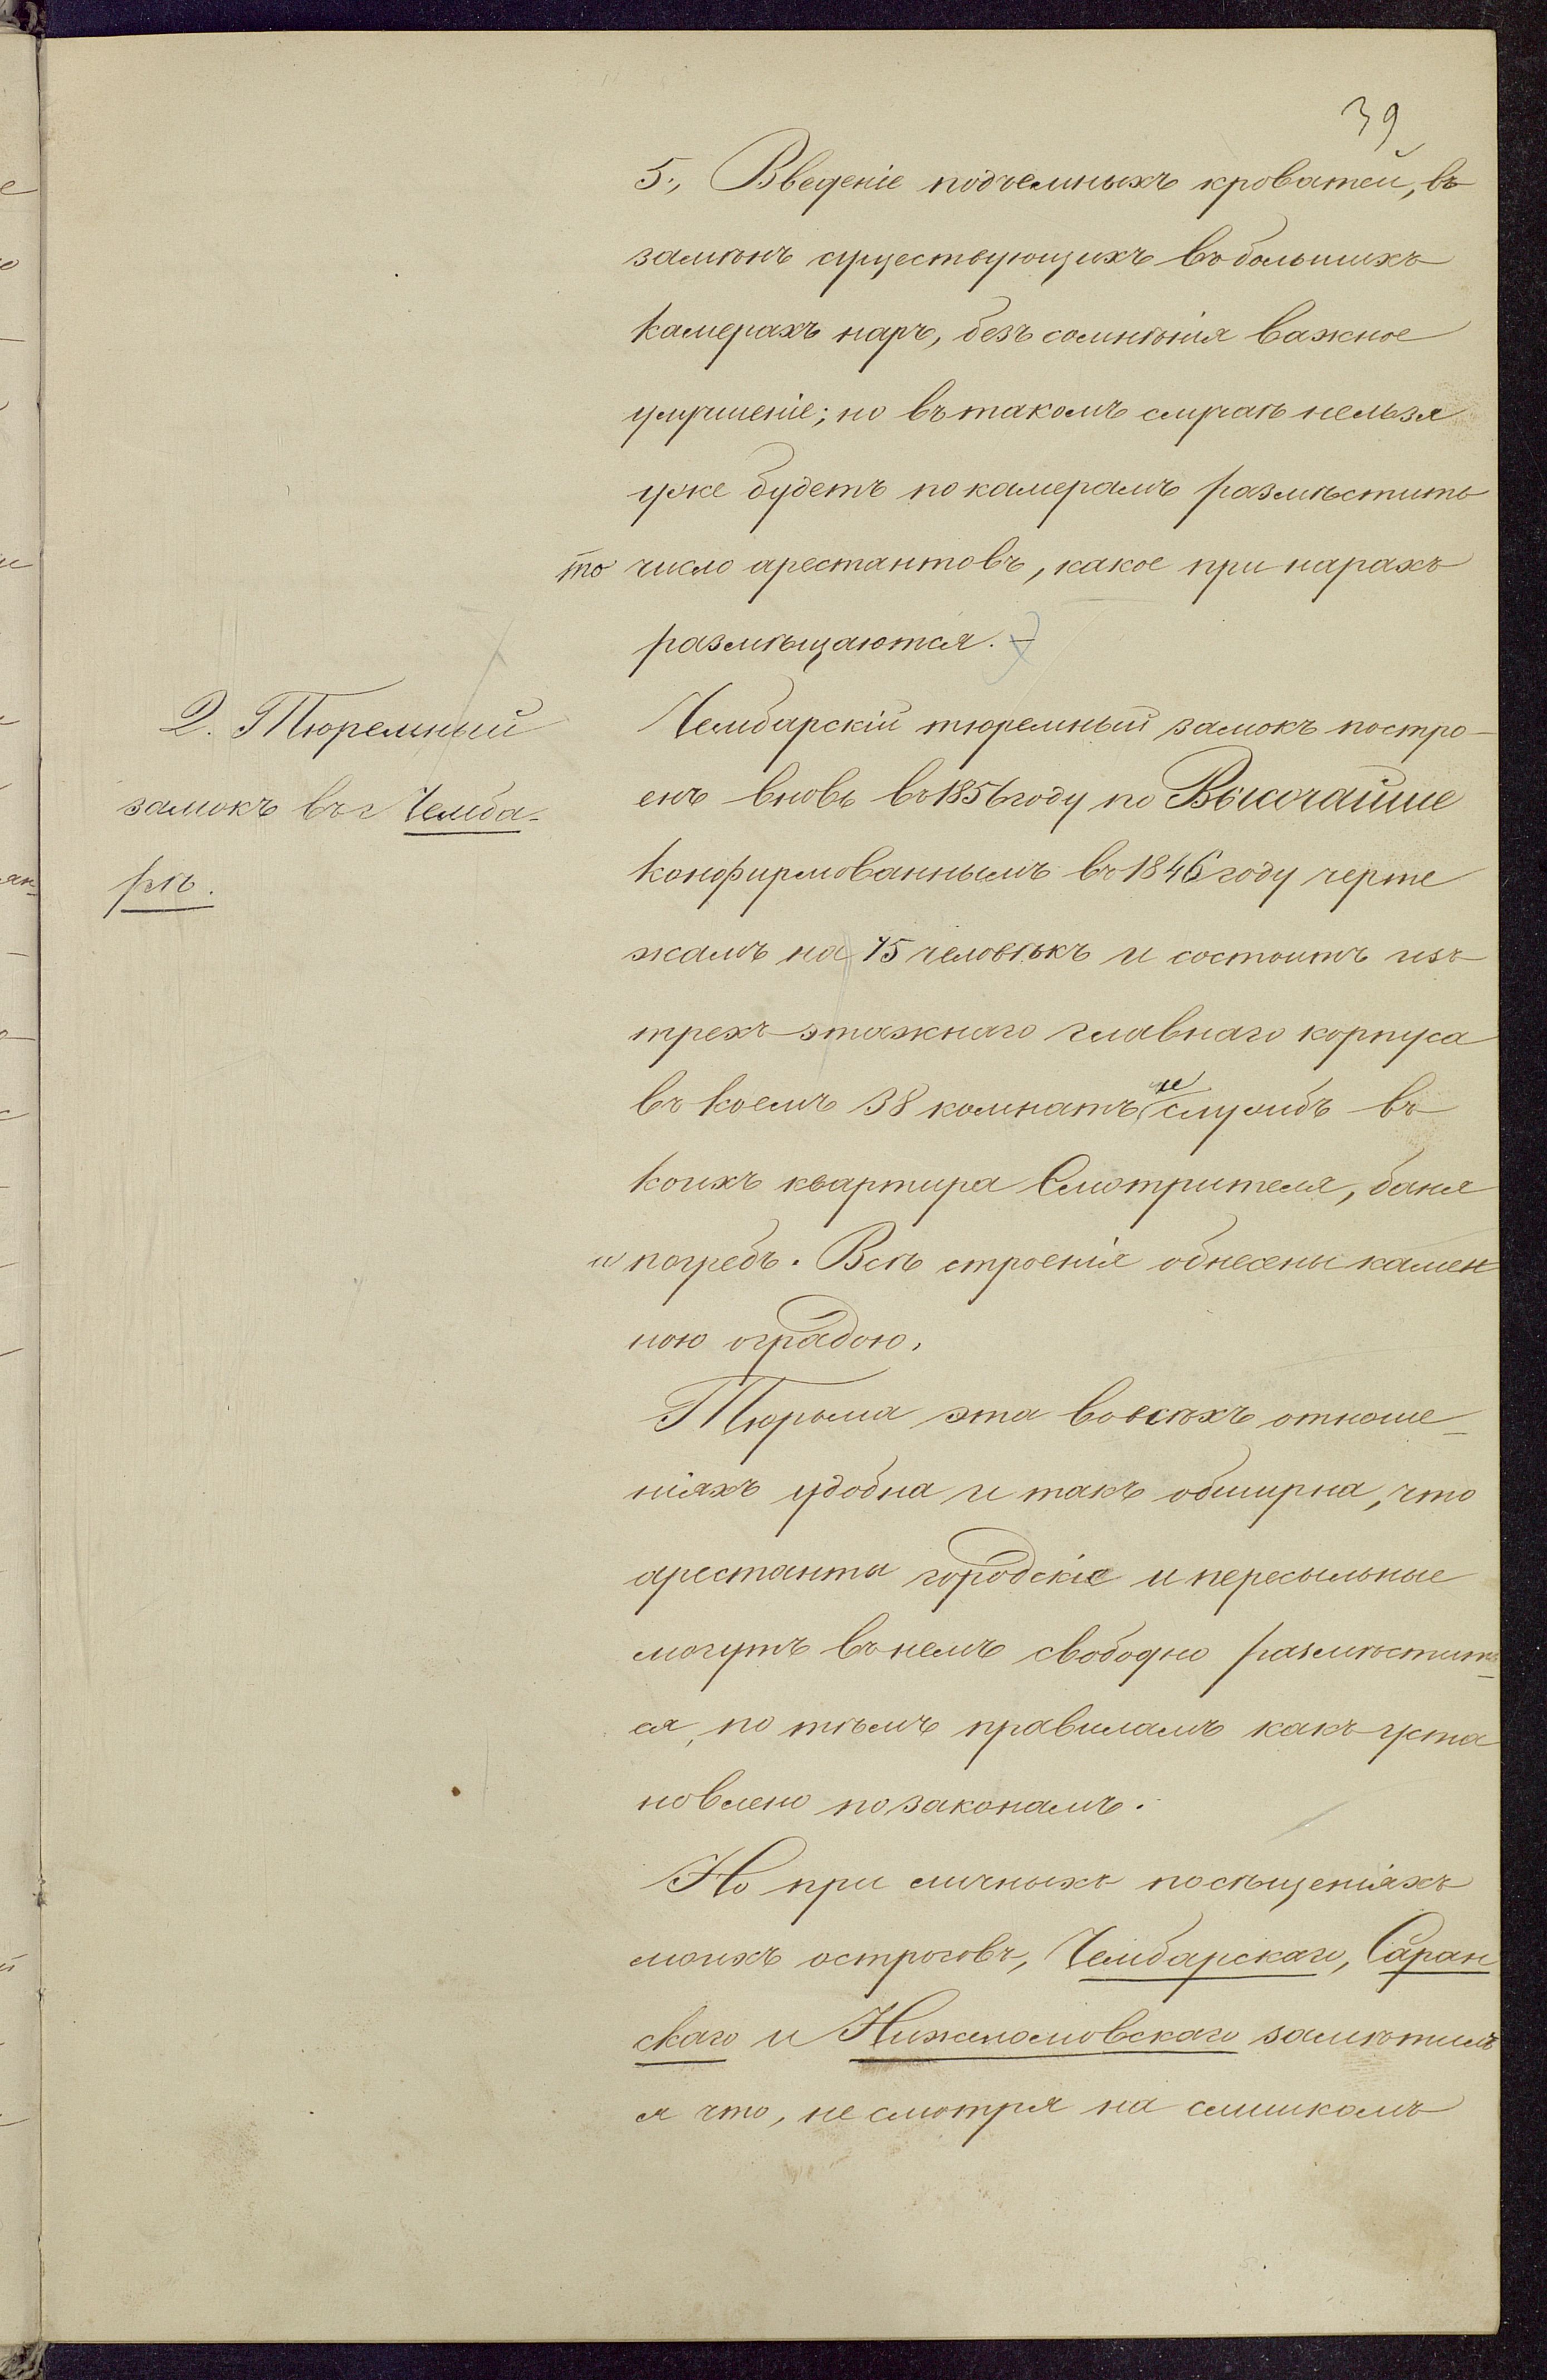 39
5., Введеніе подъемныхъ кроватей, въ
замѣнъ существующихъ въ большихъ
камерахъ наръ, безъ сомнѣнія важное
улучшеніе; но въ такомъ случаѣ нельзя
уже будетъ по камерамъ размѣстить
то число арестантовъ, какое при нарахъ
размѣщаются.
2. Тюремный
замокъ въ г Чемба-
рѣ.
Чембарскій тюремный замокъ постро-
енъ вновь въ 1856 году по Высочайше
конфирмованнымъ въ 1846 году черте
жамъ на 75 человѣкъ и состоитъ изъ
трехъ-этажнаго главнаго корпуса
въ коемъ 38 комнатъ, и службъ въ
коихъ квартира Смотрителя, баня
и погребъ. Всѣ строенія обнесены камен
ною оградою.
Тюрьма эта во всѣхъ отноше-
ніяхъ удобна и такъ обширна, что
арестанты городскіе и пересыльные
могутъ въ немъ свободно размѣстит-
ся, по тѣмъ правиламъ какъ уста
новлено по законамъ.
Но при личныхъ посѣщеніяхъ
моихъ остроговъ, Чембарскаго, Саран
скаго и Нижеломовскаго замѣтилъ
я что, не смотря на слишкомъ